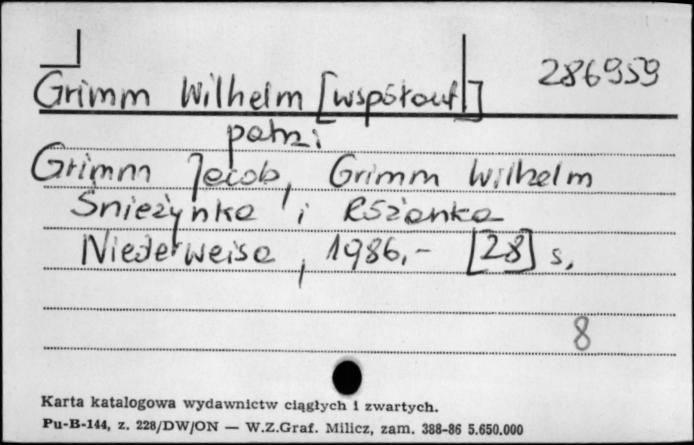 286959
Grimm Wilhelm [współaut]
patrz:
Grimm Jacob, Grimm Wilhelm
Śnieżynka i Różanka
Niederweise, 1986,- [28] s.
8
Karta katalogowa wydawnictw ciągłych i zwartych.
Pu-B-144, z. 228/DW/ON — W.Z.Graf. Milicz, zam. 388-86 5.650.000